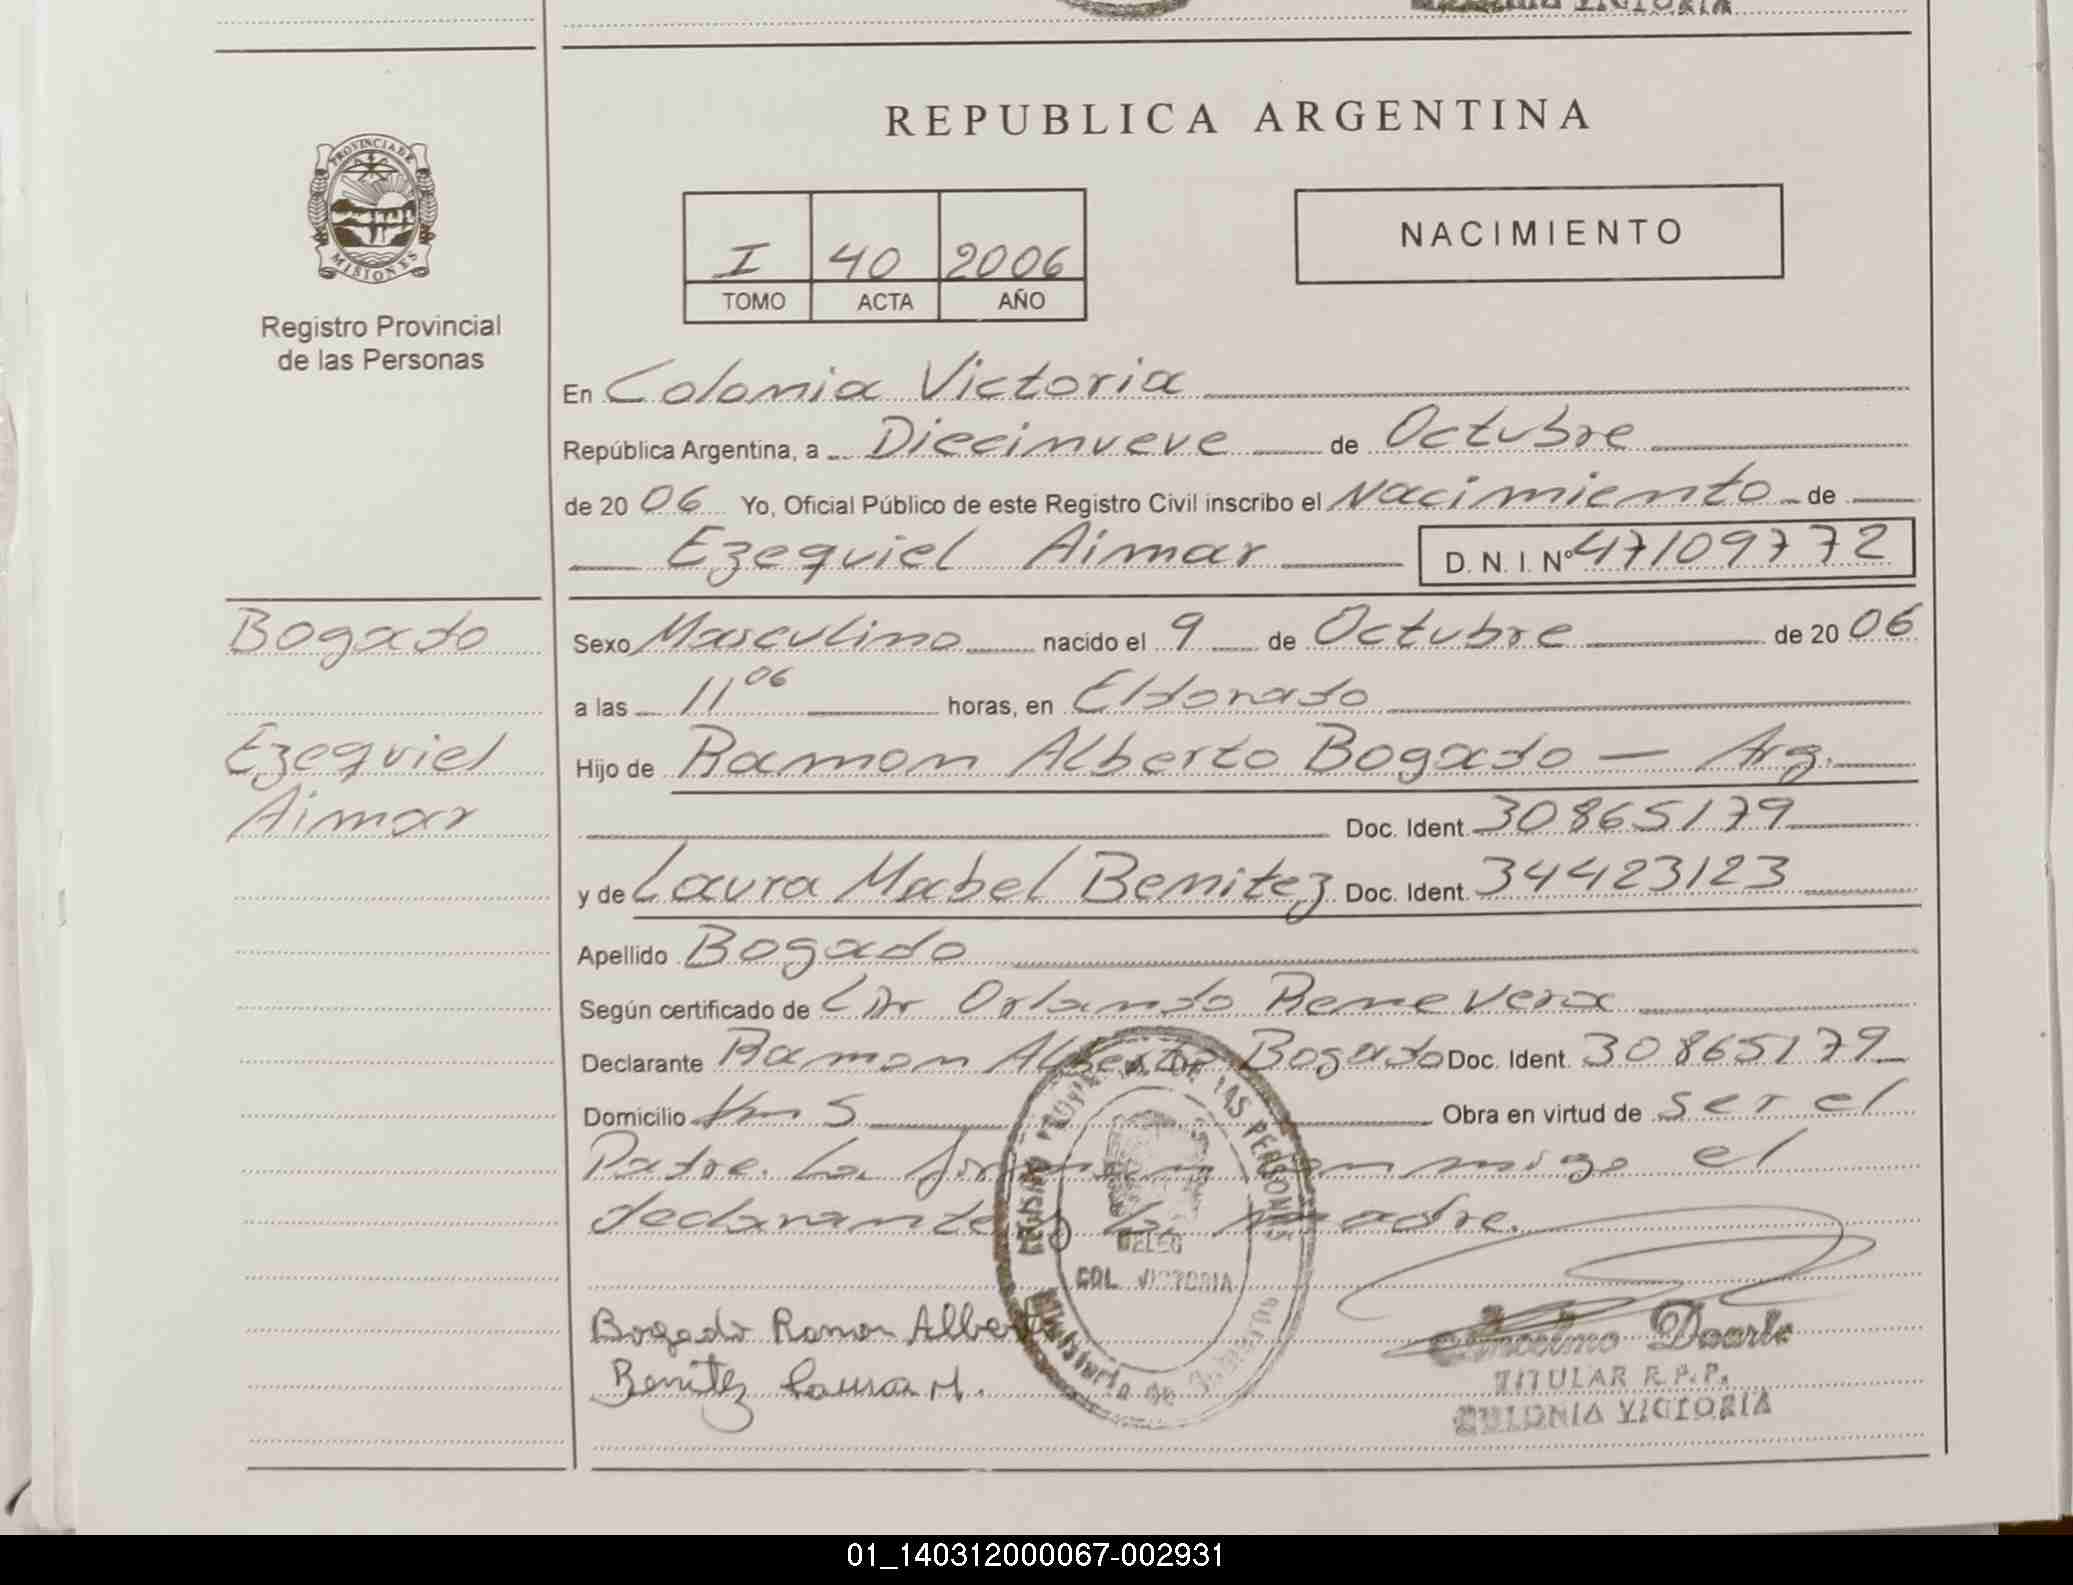 VICTORIA
REPUBLICA ARGENTINA
PROVINCIA DE
MISIONES
Registro Provincial
de las Personas
I 40 2006
TOMO ACTA AÑO
NACIMIENTO
En Colonia Victoria
República Argentina, a Diecinueve de Octubre
de 20 06 Yo, Oficial Público de este Registro Civil inscribo el Nacimiento de
Ezequiel Aimar D. N. I. Nº 47109772
Bogado
Ezequiel
Aimar
Sexo Masculino nacido el 9 de Octubre de 20 06
a las 11 06 horas, en Eldorado
Hijo de Ramon Alberto Bogado — Arg.
Doc. Ident. 30865179
y de Laura Mabel Benitez Doc. Ident. 34423123
Apellido Bogado
Según certificado de Dr Orlando Rene Vera
Declarante Ramon Alberto Bogado Doc. Ident. 30865179
Domicilio Km 5 Obra en virtud de ser el
Padre. La firman conmigo el
declarante y la madre.
REGISTRO PROVINCIAL DE LAS PERSONAS
DELEG
COL. VICTORIA
Ministerio de Gobierno
Bogado Ramon Alberto
Benitez Laura M.
Duarte
TITULAR R.P.P.
COLONIA VICTORIA
01_140312000067-002931